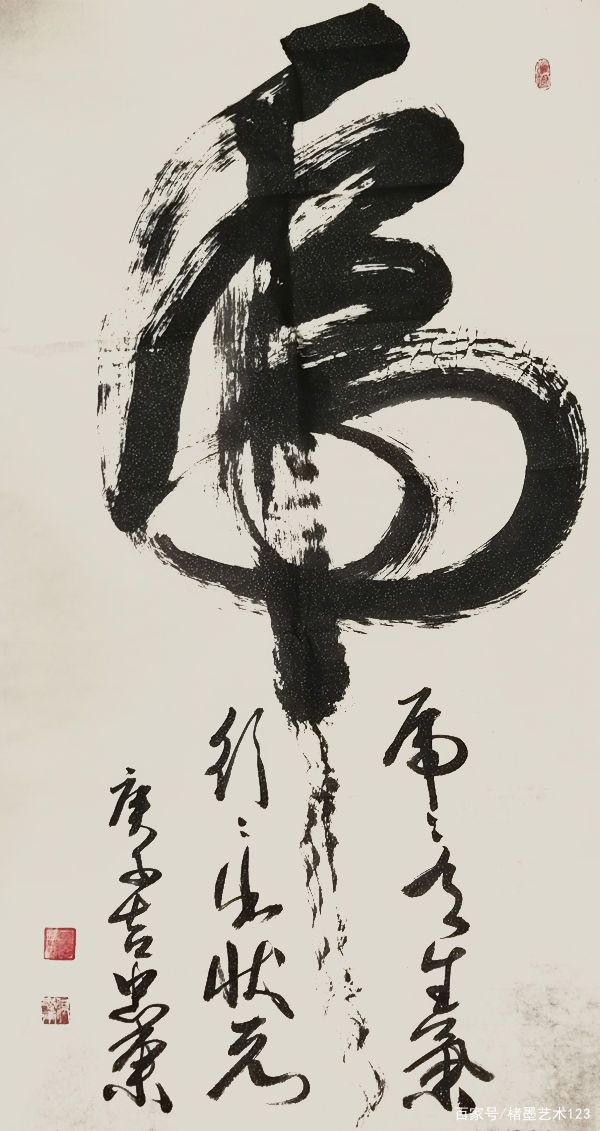 虎
虎〻有生氣
行〻出状元
庚子吉忠
百家号/楮墨艺术123